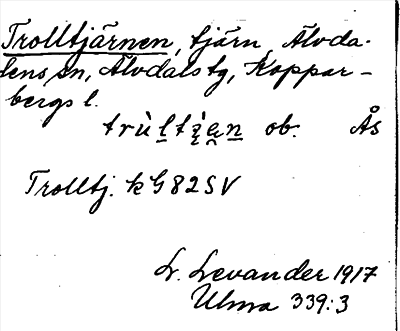 Trolltjärnen, tjärn, Älvda-
lens sn, Älvdals tg, Koppar-
bergs l.
trùltjan ob. Ås
Trolltj. k G 82 SV
L. Levander 1917
Ulma 339:3